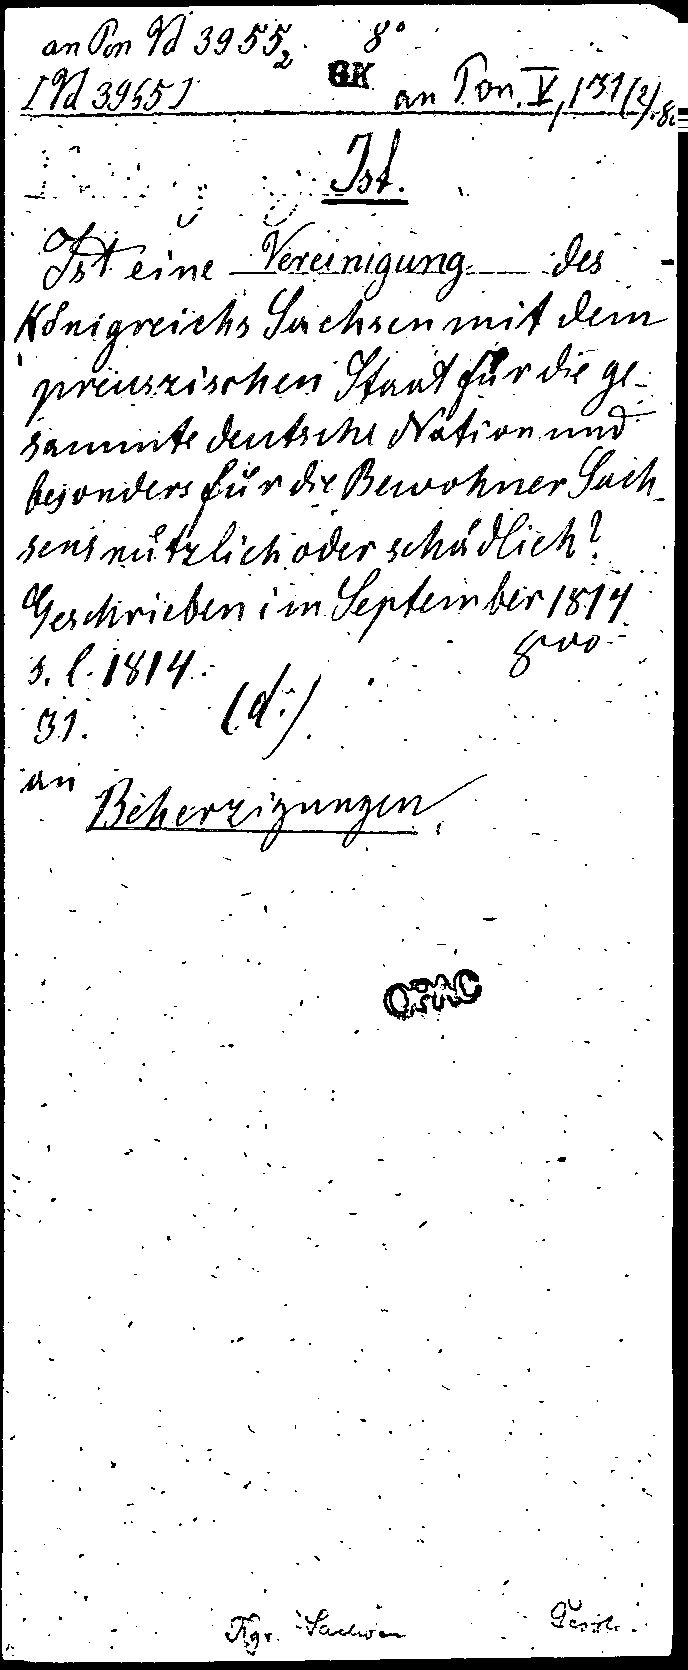 an Pon Vd 3955₂ 8°
[Vd 3955] GK an Pon. V, 131(2), 8°
Ist.
Ist eine Vereinigung des
Königreichs Sachsen mit dem
preuszischen Staat für die ge-
sammte deutsche Nation und
besonders für die Bewohner Sach-
sens nützlich oder schädlich?
Geschrieben im September 1814
s. l. 1814.
31. (d.)
an
Beherzigungen.
Kgr. Sachsen